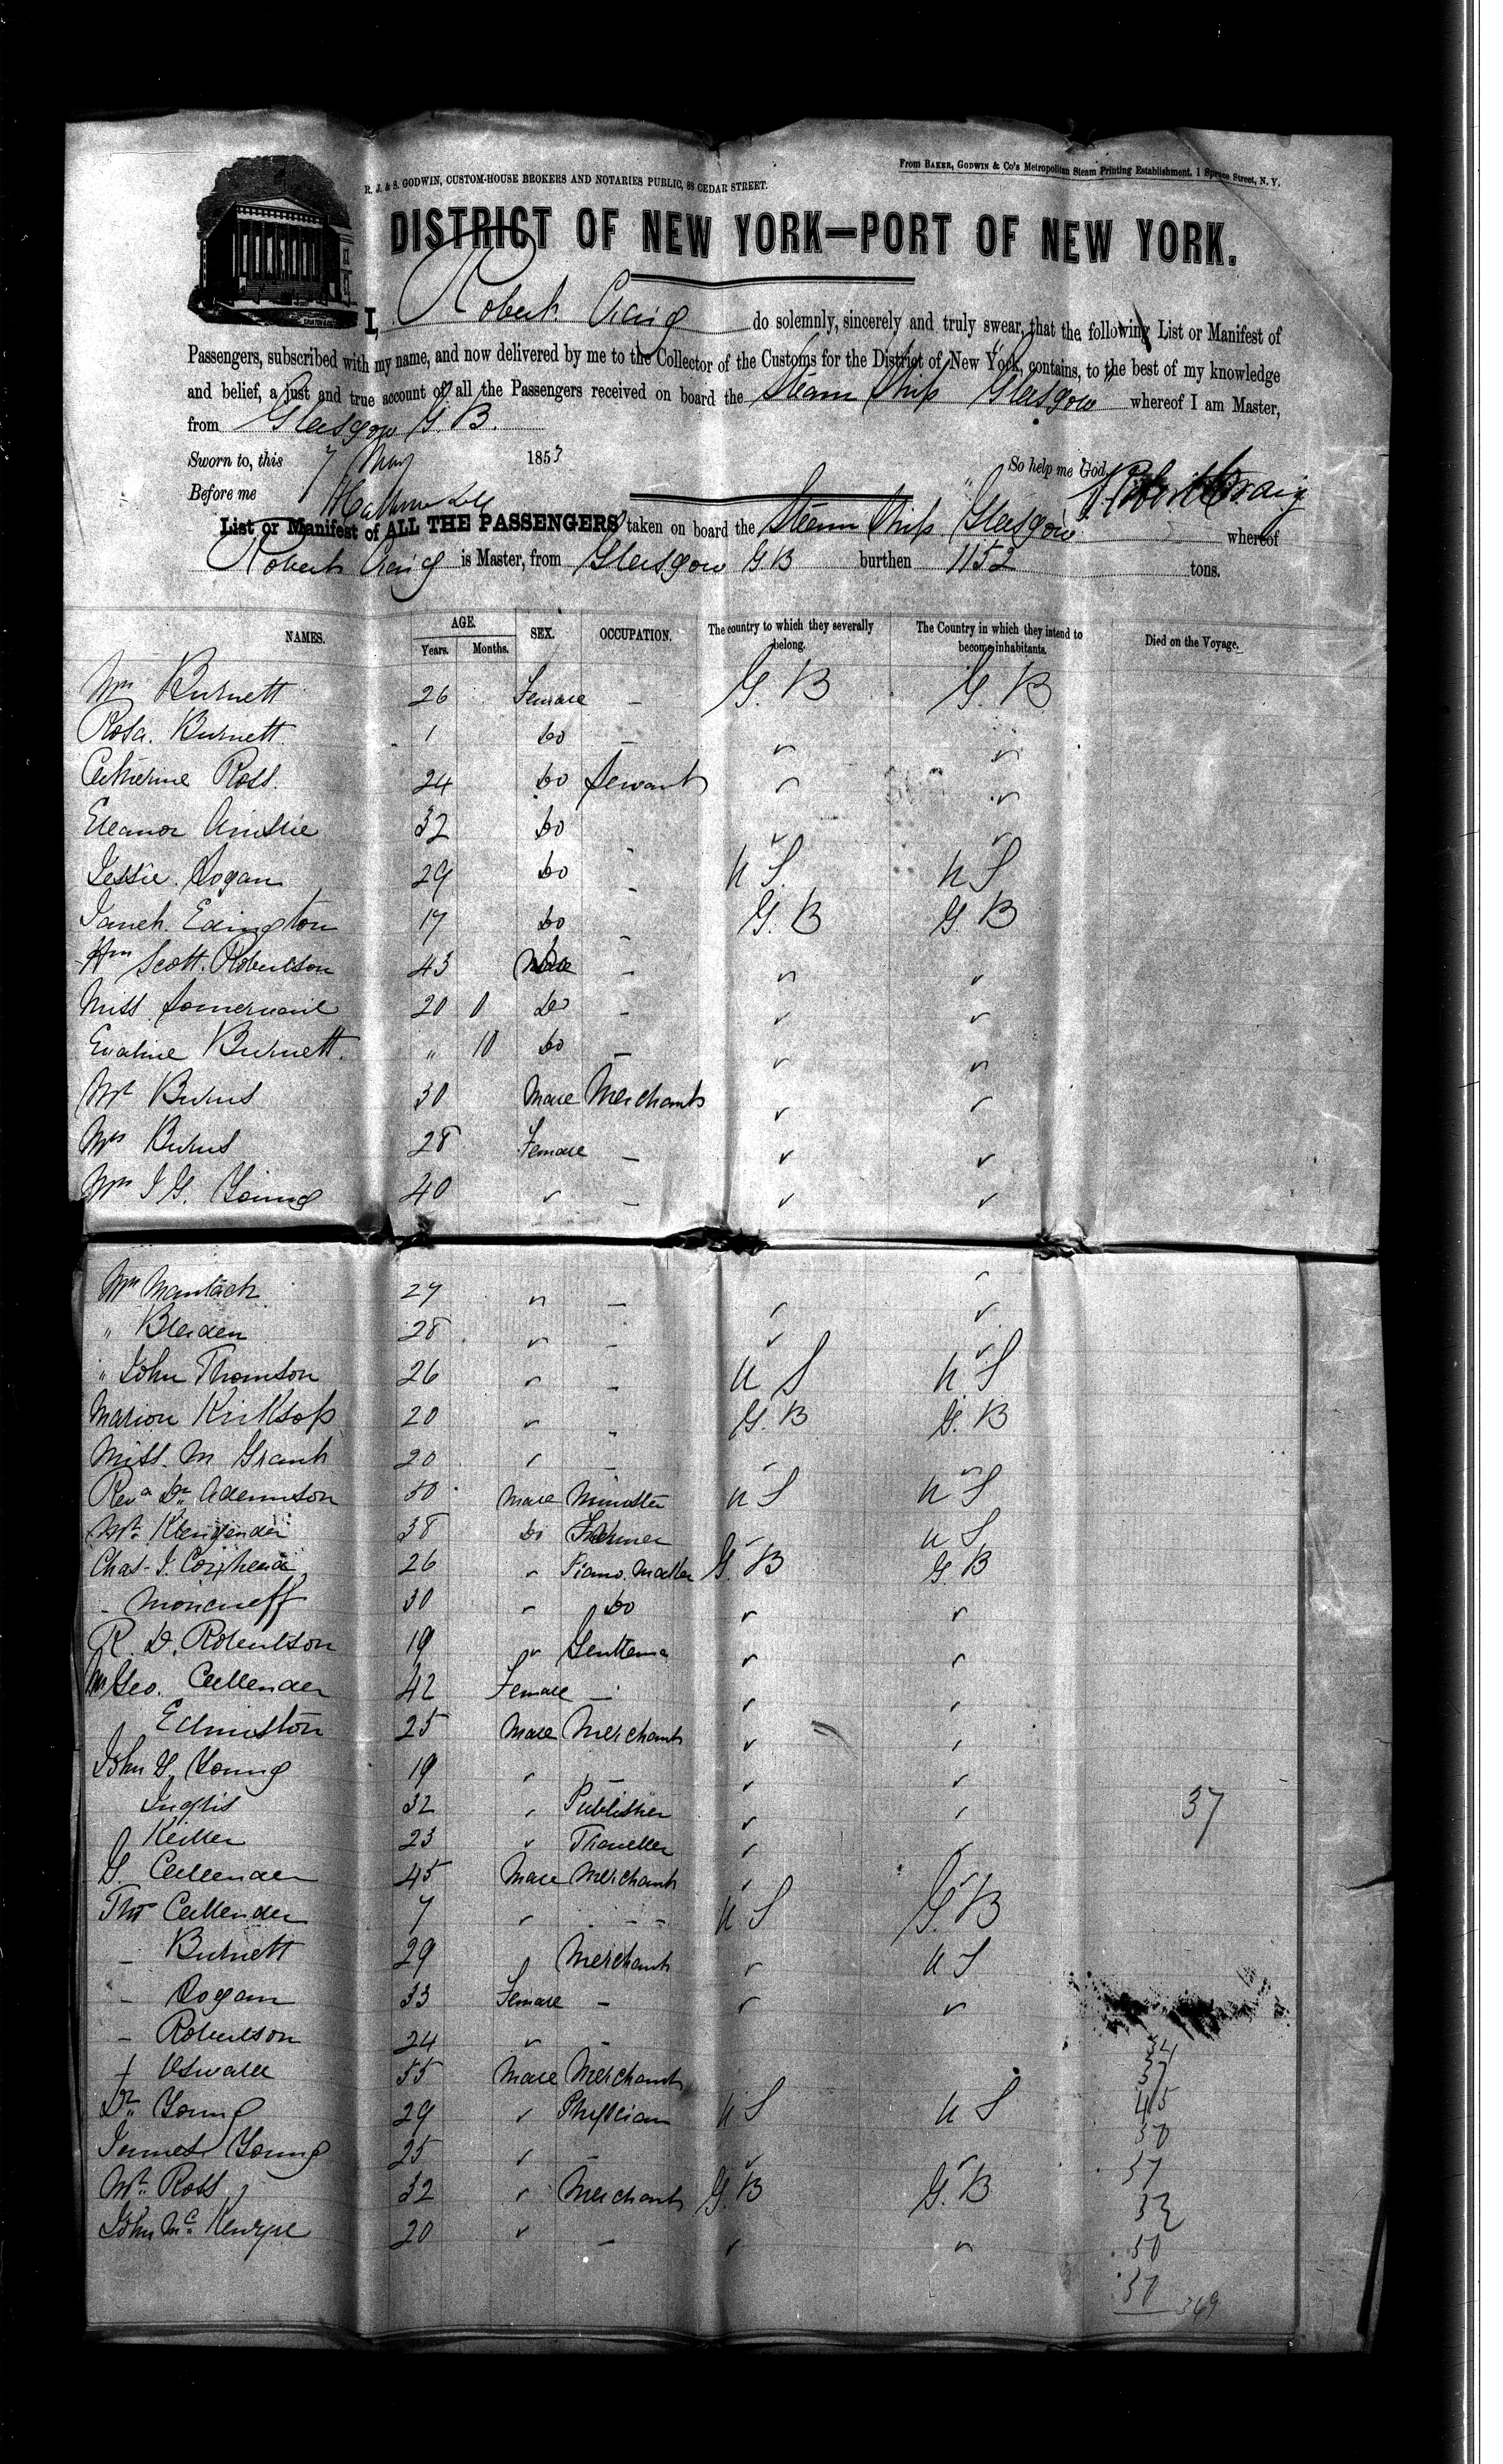 R. J. & S. GODWIN, CUSTOM-HOUSE BROKERS AND NOTARIES PUBLIC, 88 CEDAR STREET.
From BAKER, GODWIN & Co's Metropolitan Steam Printing Establishment, 1 Spruce Street, N. Y.
DISTRICT OF NEW YORK—PORT OF NEW YORK.
I, Robert Craig do solemnly, sincerely and truly swear, that the following List or Manifest of
Passengers, subscribed with my name, and now delivered by me to the Collector of the Customs for the District of New York, contains, to the best of my knowledge
and belief, a just and true account of all the Passengers received on board the Steam Ship Glasgow whereof I am Master,
from Glasgow G.B.
Sworn to, this 7 May 1853 So help me God, Robert Craig
Before me
List or Manifest of ALL THE PASSENGERS taken on board the Steam Ship Glasgow whereof
Robert Craig is Master, from Glasgow G B burthen 1152 tons.
NAMES. AGE. Years. Months. SEX. OCCUPATION. The country to which they severally belong. The Country in which they intend to become inhabitants. Died on the Voyage.
Mrs Burnett 26 Female – G. B G. B
Rosa Burnett 1 Do –
Catherine Ross 24 Do Servant
Eleanor Ainslie 32 Do
Jessie Logan 29 Do – U S. U S
Edington 17 Do G. B G. B
Scott Robertson 43 –
Miss Somervail 20 0 Do –
Evaline Burnett " 10 Do –
Mr Burns 30 Male Merchant
Mrs Burns 28 Female –
Mrs J G. Young 40 –
Mrs Mantach 27 –
" 28 –
" John Thomson 26 – U S U S
Marion Kirksop 20 G. B G. B
Miss M Grant 20 –
Revd Dr 50 Male Minister U S U S
Mr 38 Do Farmer U S
Chas J. 26 Piano Maker G. B G. B
– Moncrieff 30 Do
R. D. Robertson 19 Gentleman
Mrs Geo. Callender 42 Female –
Edmiston 25 Male Merchant
John G. Young 19 –
Inglis 32 Publisher 37
Keiller 23 Traveller
G. Callender 45 Male Merchant
Thos Callender 7 – – – U S G. B
– Burnett 29 Merchant U S
– Logan 33 Female –
– Robertson 24 –
Oswald 55 Male Merchant 37
Dr Young 29 Physician U S U S 45
James Young 25 – 50
Mr Ross 32 Merchant G. B G. B 37
John Mc 20 –
50
50
369